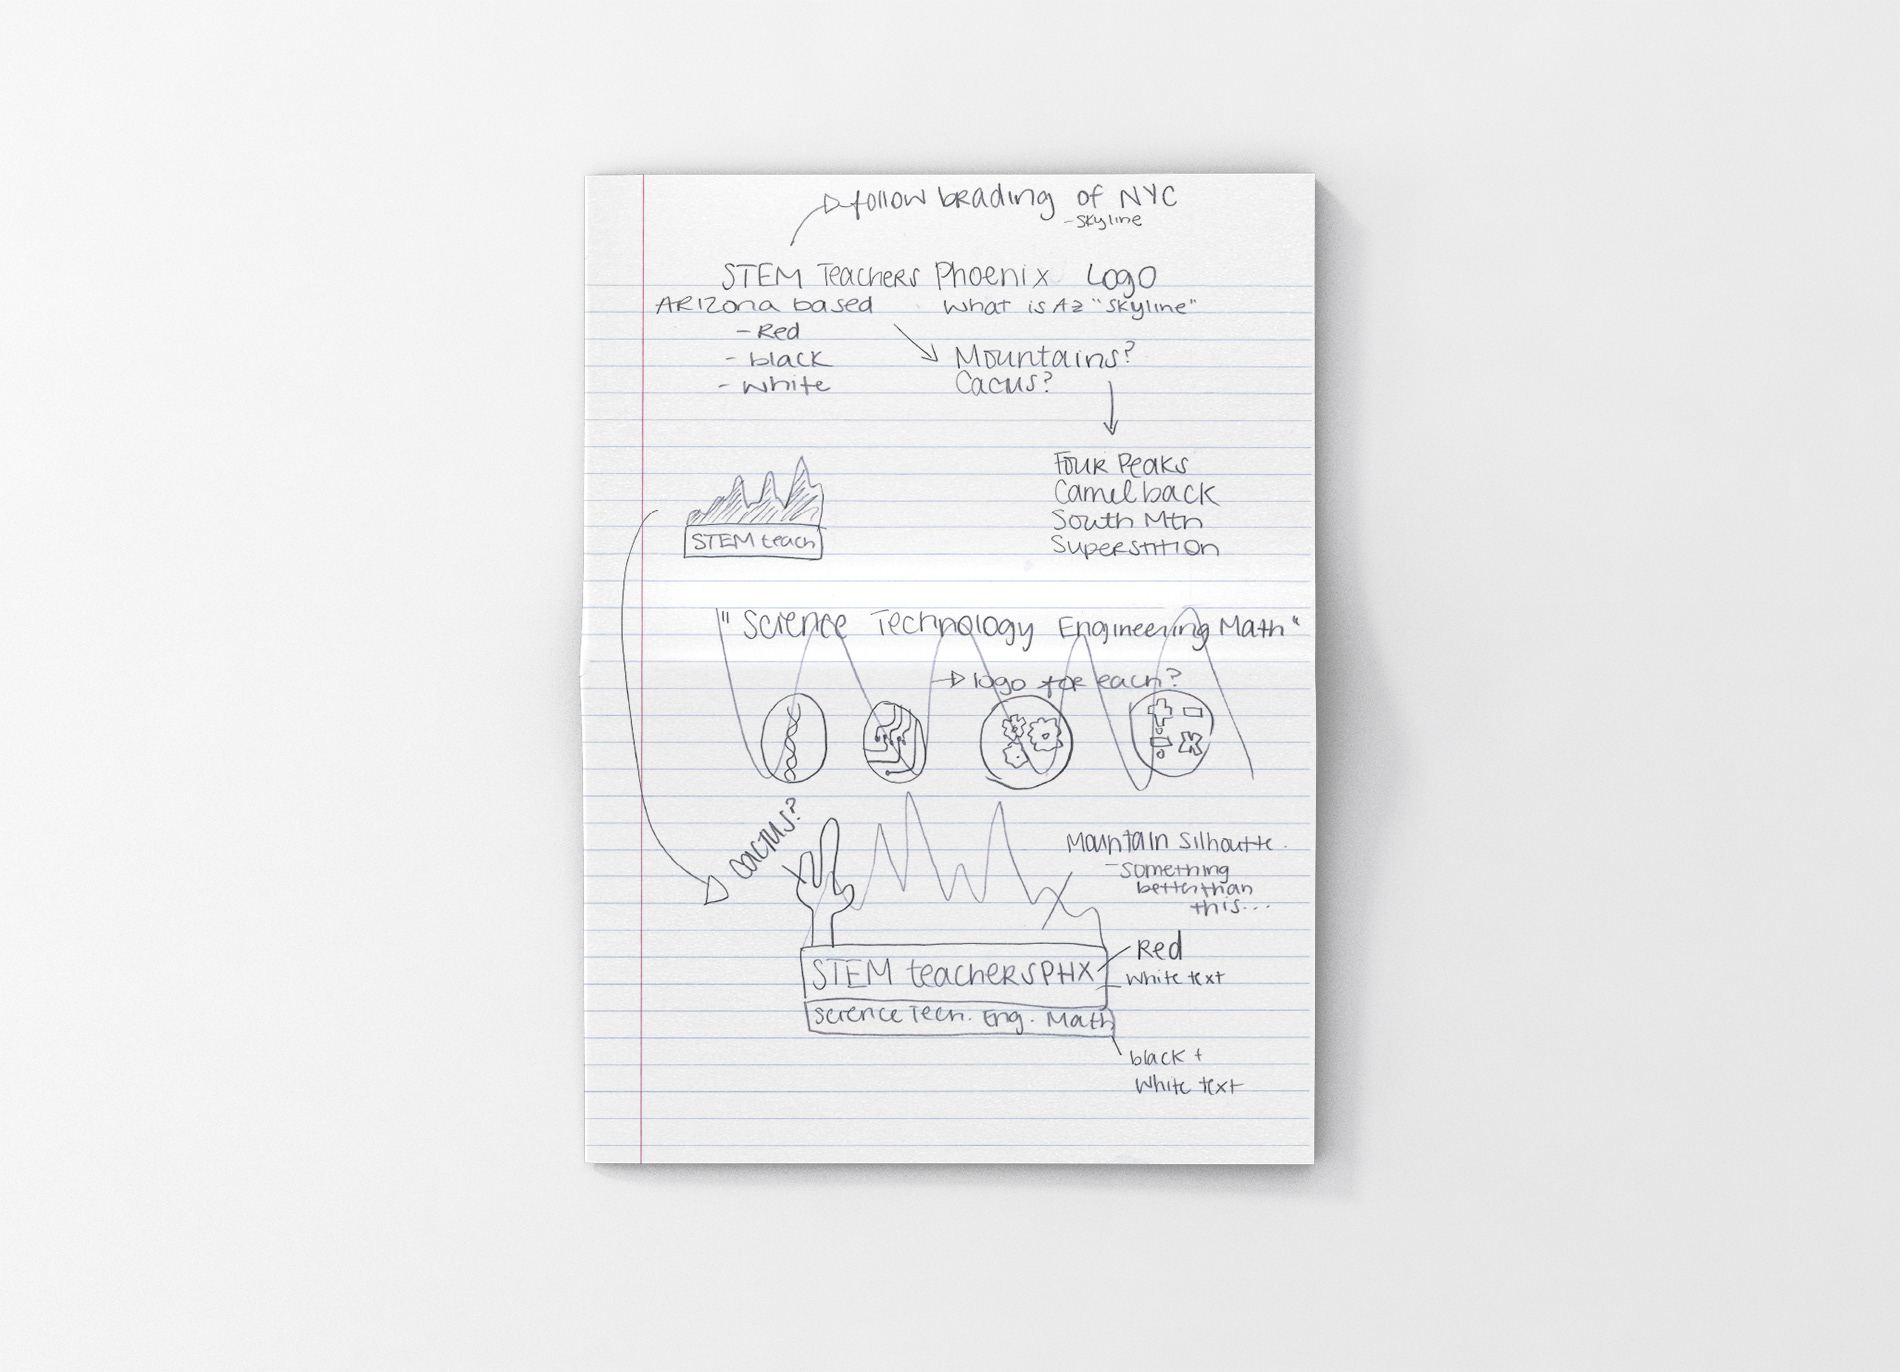 follow brading of NYC
-skyline
STEM Teachers Phoenix Logo
Arizona based
What is Az "skyline"
- Red
- black
- white
Mountains?
Cacus?
Four Peaks
Camelback
South Mtn
Superstition
STEM teach
"Science Technology Engineering Math"
logo for each?
cactus?
Mountain Silhoutte.
- something
better than
this...
STEM teachersPHX
Red
White text
Science Tech. Eng. Math
black +
White text